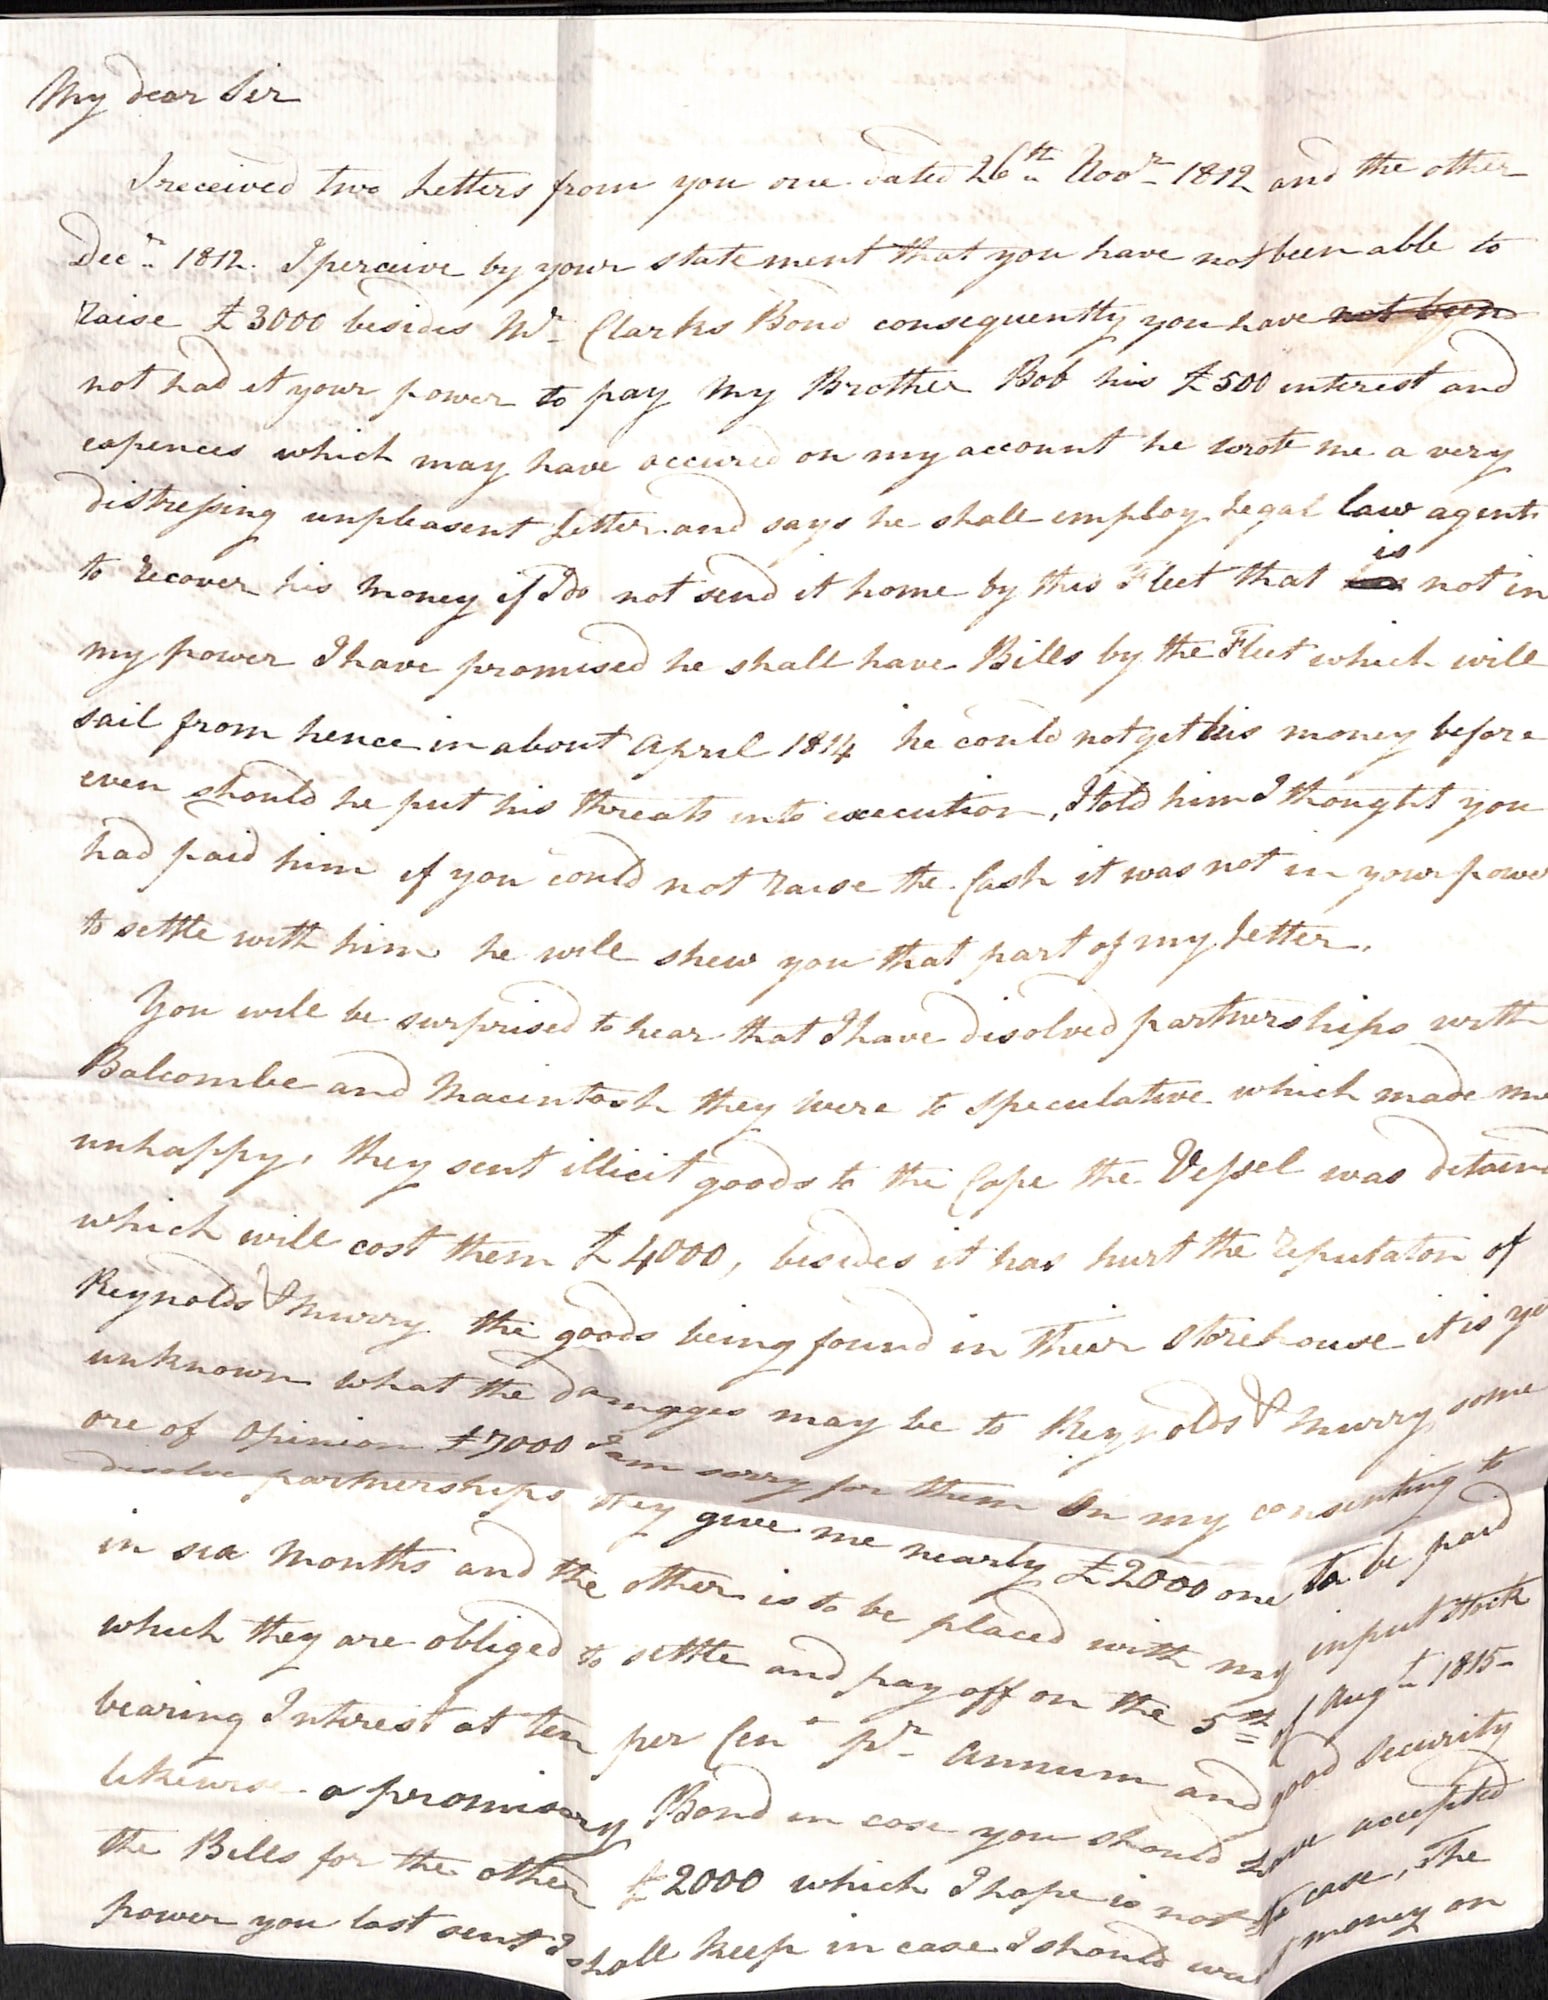 My dear Sir
I received two Letters from you one dated 26th Novr 1812 and the other
Decr 1812. I perceive by your statement that you have not been able to
raise £3000 besides Mr Clarks Bond consequently you have not been
not had it your power to pay my Brother Bob his £500 interest and
expences which may have occured on my account he wrote me a very
distressing unpleasent Letter and says he shall employ legal law agents
to recover his money if I do not send it home by this Fleet that is not in
my power I have promised he shall have Bills by the Fleet which will
sail from hence in about April 1814 he could not get his money before
even should he put his threats into execution, I told him I thought you
had paid him if you could not raise the Cash it was not in your power
to settle with him he will shew you that part of my Letter.
You will be surprised to hear that I have disolved partnerships with
Balcombe and Macintosh they were to speculative which made me
unhappy, they sent illicit goods to the Cape the Vessel was detaind
which will cost them £4000, besides it has hurt the reputaton of
Reynolds & Murry the goods being found in their Storehouse it is yet
unknown what the damages may be to Reynolds & Murry some
are of opinion £7000 I am sorry for them On my consenting to
desolve partnerships they give me nearly £2000 one to be paid
in six months and the other is to be placed with my input stock
which they are obliged to settle and pay off on the 5th of Augt 1815-
bearing Interest at ten per Cent pr annum and good security
likewise a promisary Bond in case you should have accepted
the Bills for the other £2000 which I hope is not the case, The
power you last sent I shall keep in case I should want money on